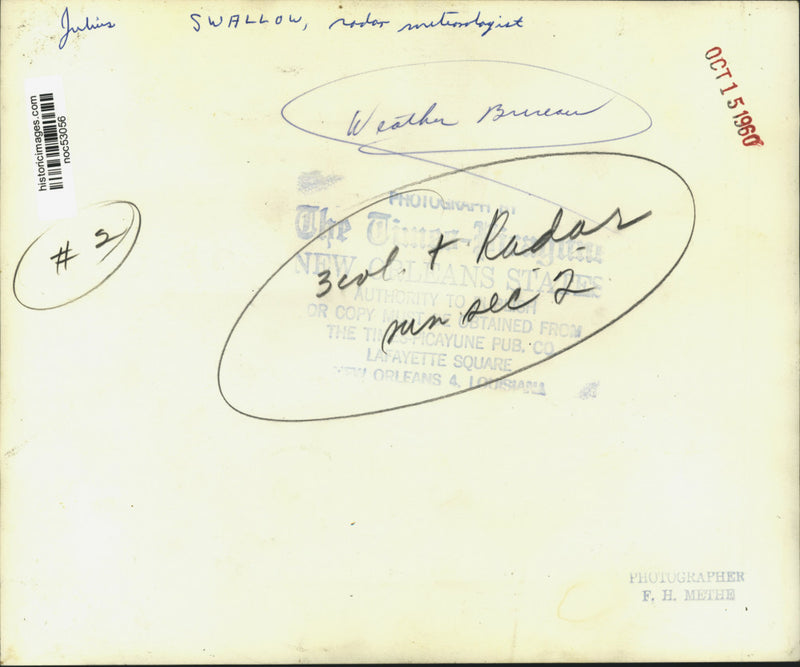 Julius SWALLOW, radar meteorologist
OCT 15 1960
Weather Bureau
historicimages.com
noc53056
# 2
PHOTOGRAPH BY
The Times-Picayune
NEW ORLEANS STATES
AUTHORITY TO PUBLISH
OR COPY MUST BE OBTAINED FROM
THE TIMES-PICAYUNE PUB. CO.
LAFAYETTE SQUARE
NEW ORLEANS 4, LOUISIANA
3 col. + Radar
run sec. 2
PHOTOGRAPHER
F. H. METHE